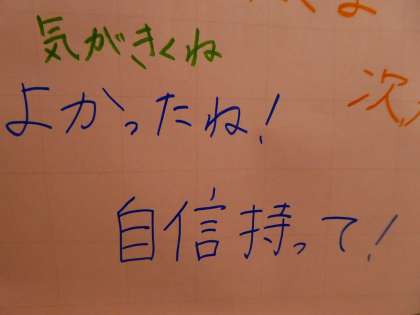 気がきくね
よかったね!
次
自信持って!